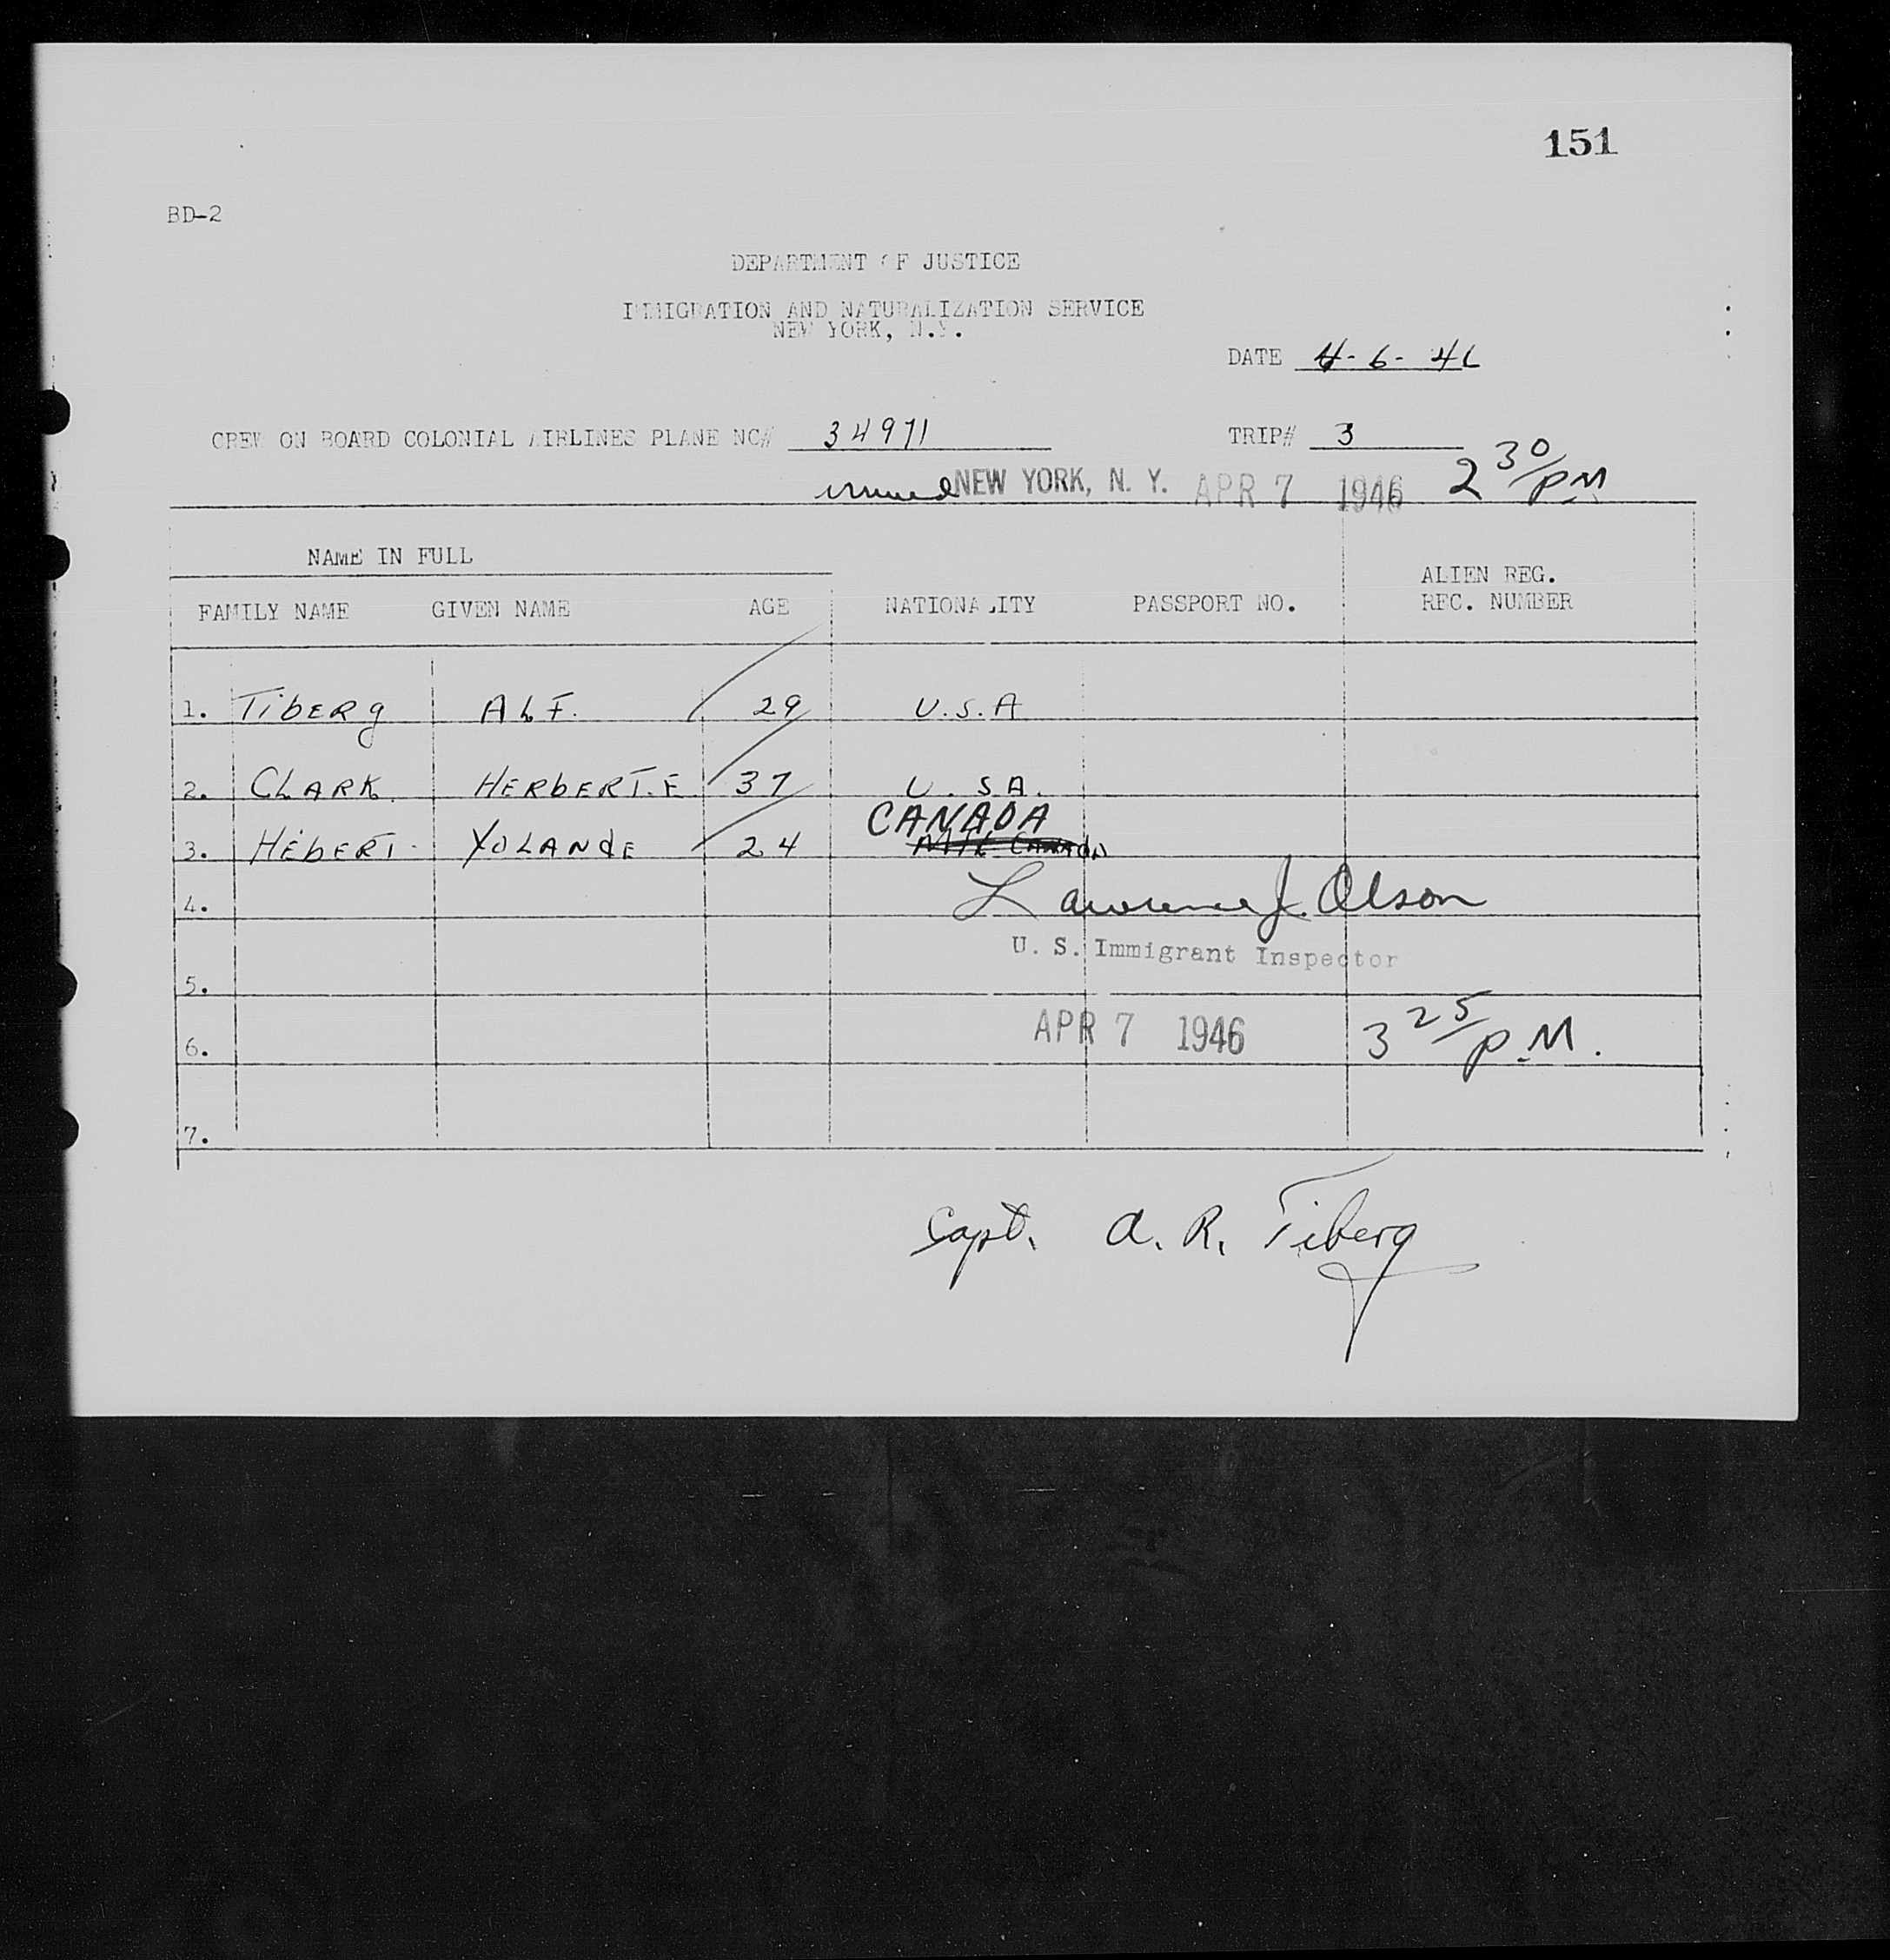 151
BD-2
DEPARTMENT OF JUSTICE
IMMIGRATION AND NATURALIZATION SERVICE
NEW YORK, N.Y.
DATE 4-6-46
CREW ON BOARD COLONIAL AIRLINES PLANE NC# 34971 TRIP# 3
arrived NEW YORK, N. Y. APR 7 1946 2 30/PM
NAME IN FULL
FAMILY NAME GIVEN NAME AGE NATIONALITY PASSPORT NO. ALIEN REG. REC. NUMBER
1. Tiberg ALF. 29 U.S.A
2. CLARK HERBERT.E 37 U.S.A.
CANADA
3. HÉBERT YOLANDE 24 Mtl CANADA
4. Lawrence J. Olson
U. S. Immigrant Inspector
5.
6. APR 7 1946 3 25/P.M.
7.
Capt. A. R. Tiberg